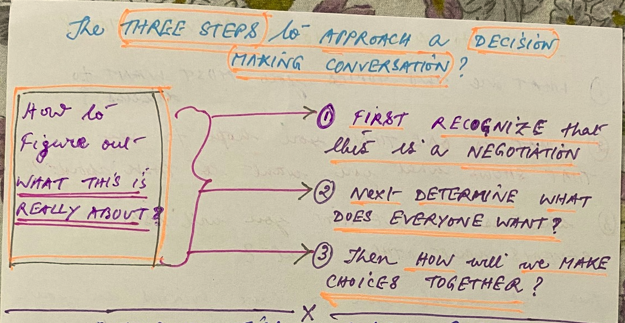 The THREE STEPS to APPROACH a DECISION
MAKING CONVERSATION?
How to
Figure out
WHAT THIS IS
REALLY ABOUT?
① FIRST RECOGNIZE that
this is a NEGOTIATION
② Next DETERMINE WHAT
DOES EVERYONE WANT?
③ Then HOW will we MAKE
CHOICES TOGETHER?
X